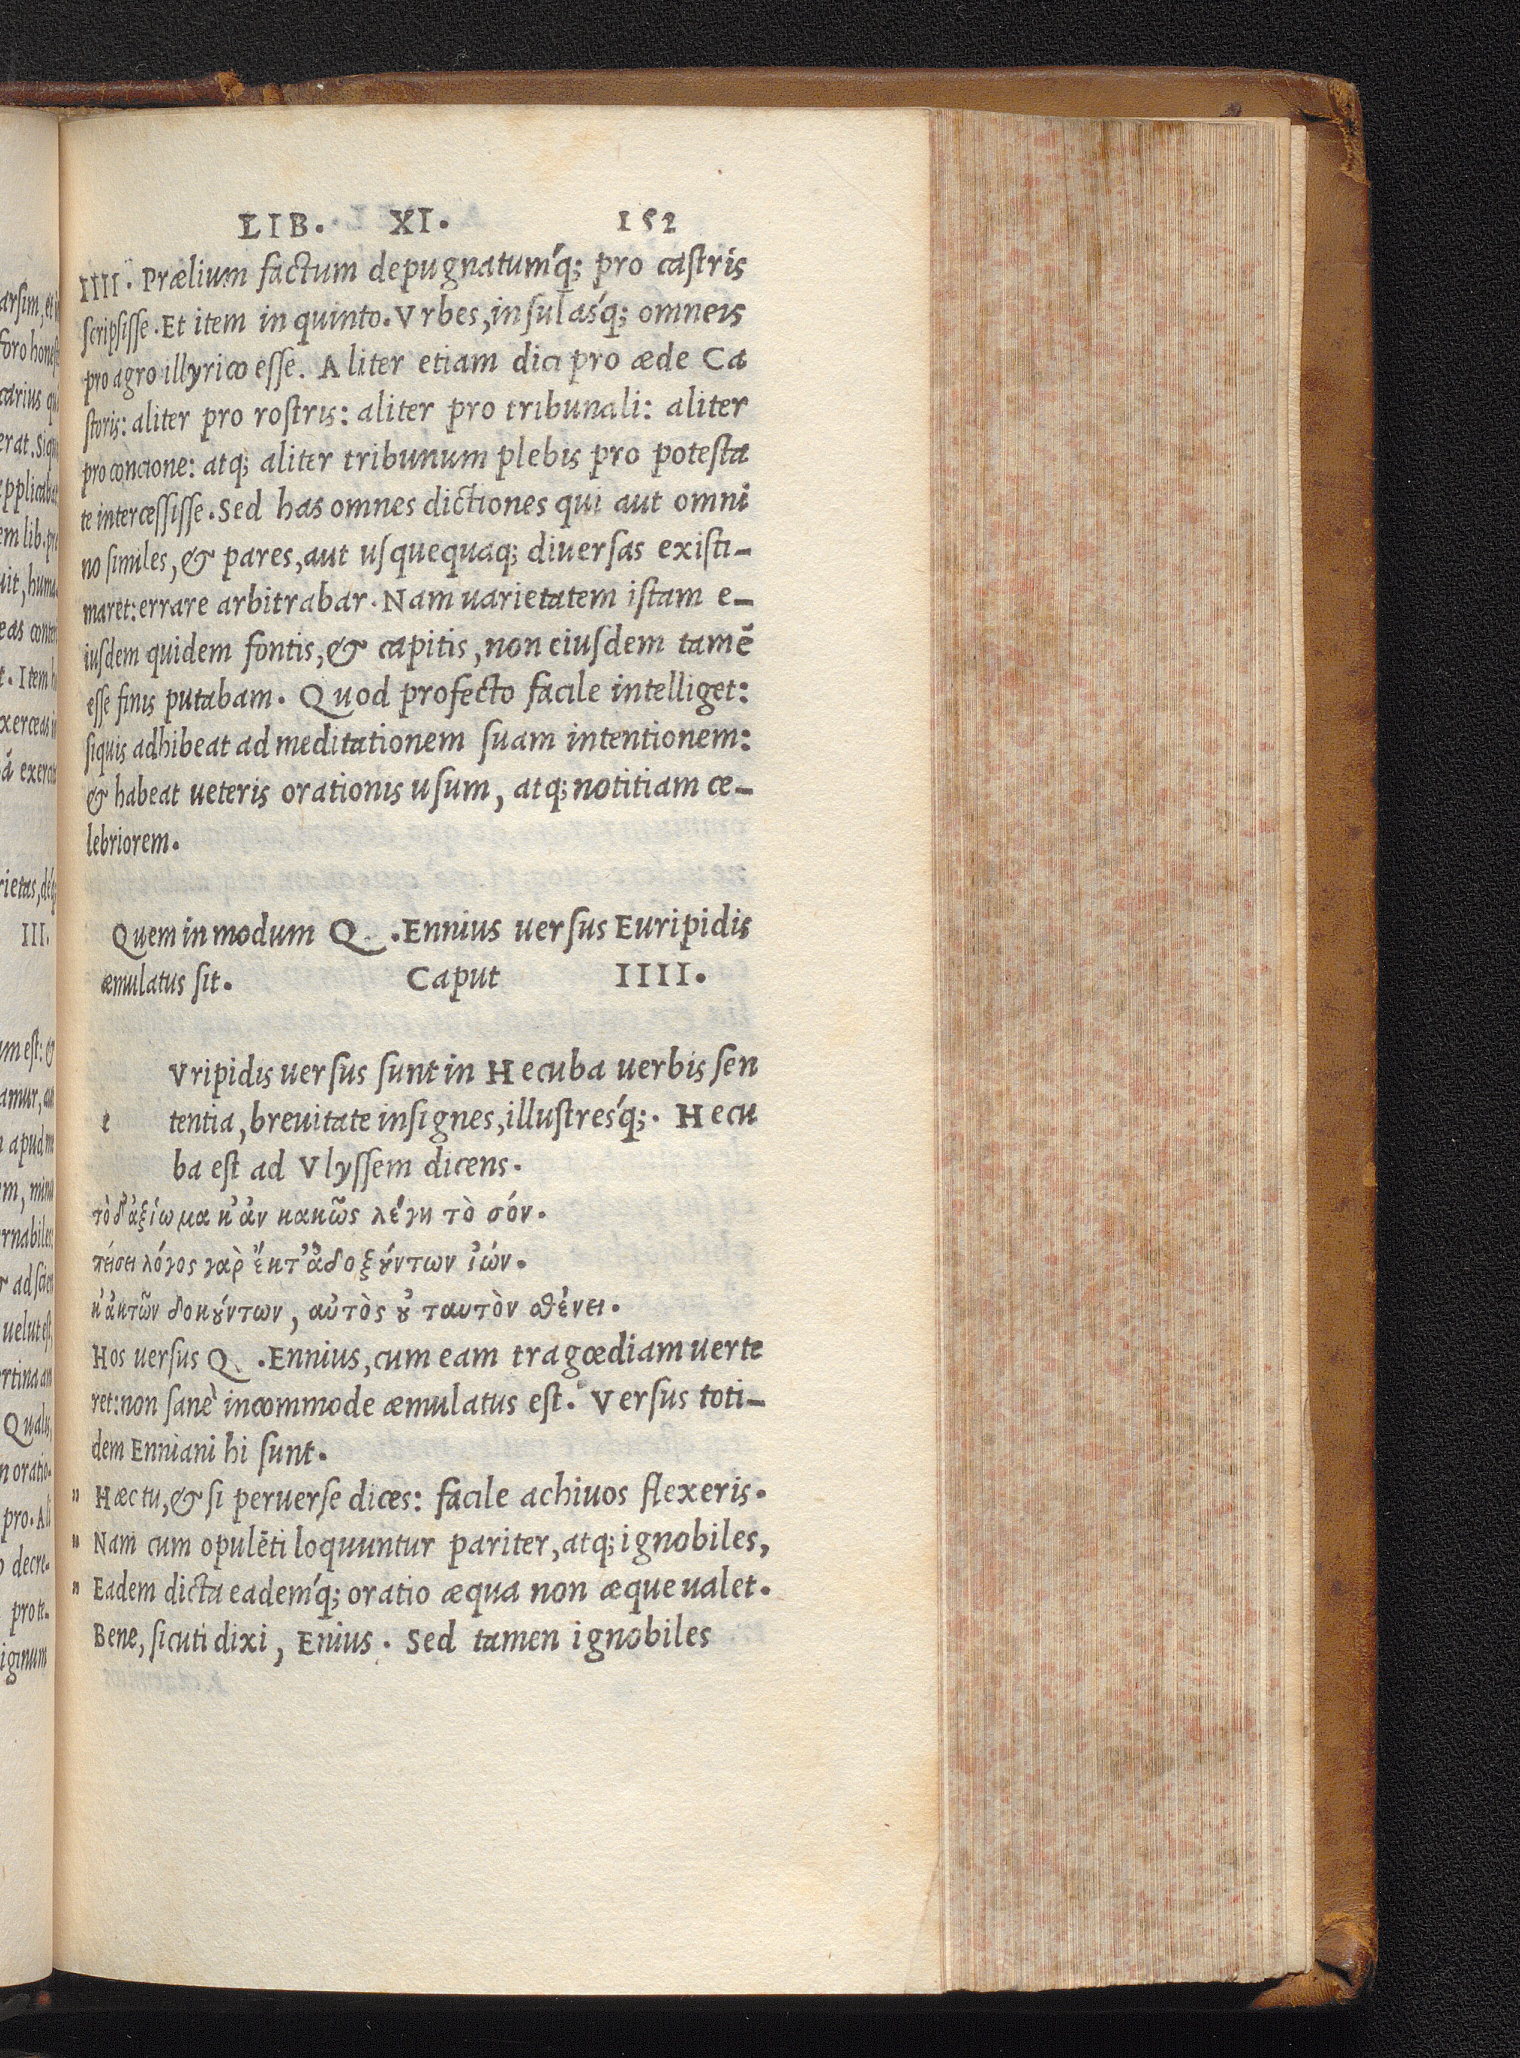 LIB. XI. 152
IIII. Prælium factum depugnatumq́; pro caſtris
ſcripſiſſe. Et item in quinto. Vrbes, inſulasq́; omneis
pro agro illyrico eſſe. Aliter etiam dici pro æde Ca
ſtoris: aliter pro roſtris: aliter pro tribunali: aliter
pro concione: atq; aliter tribunum plebis pro poteſta
te interceſſiſſe. Sed has omnes dictiones qui aut omni
no similes, & pares, aut uſquequaq; diuerſas exiſti-
maret: errare arbitrabar. Nam uarietatem iſtam e-
iuſdem quidem fontis, & capitis, non eiuſdem tamē
eſſe finis putabam. Quod profecto facile intelliget:
ſiquis adhibeat ad meditationem ſuam intentionem:
& habeat ueteris orationis uſum, atq; notitiam ce-
lebriorem.
Quem in modum Q. Ennius uerſus Euripidis
æmulatus ſit. Caput IIII.
Vripidis uerſus ſunt in Hecuba uerbis ſen
e tentia, breuitate inſignes, illuſtresq́;. Hecu
ba eſt ad Vlyſſem dicens.
τὸ δ'ἀξίωμα κ'ἀν κακῶς λέγη τὸ σόν.
πείσει λόγος γαρ ἔκτ'ἀδοξȣ́ντων ἰών.
κ'ἀκτῶν δοκȣ́ντων, αὐτὸς ȣ̓ ταυτὸν σθένει.
Hos uerſus Q. Ennius, cum eam tragœdiam uerte
ret: non ſanè incommode æmulatus eſt. Verſus toti-
dem Enniani hi ſunt.
" Hæc tu, & ſi peruerſe dices: facile achiuos flexeris.
" Nam cum opulēti loquuntur pariter, atq; ignobiles,
" Eadem dicta eademq́; oratio æqua non æque ualet.
Bene, ſicuti dixi, Enius. Sed tamen ignobiles